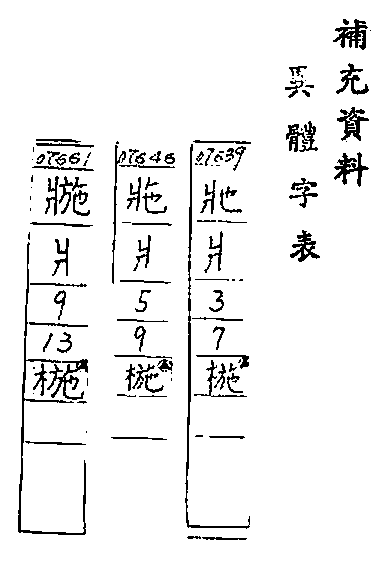 補充資料
異體字表
07639
爿
3
7
椸
07646
爿
5
9
椸
07661
爿
9
13
椸